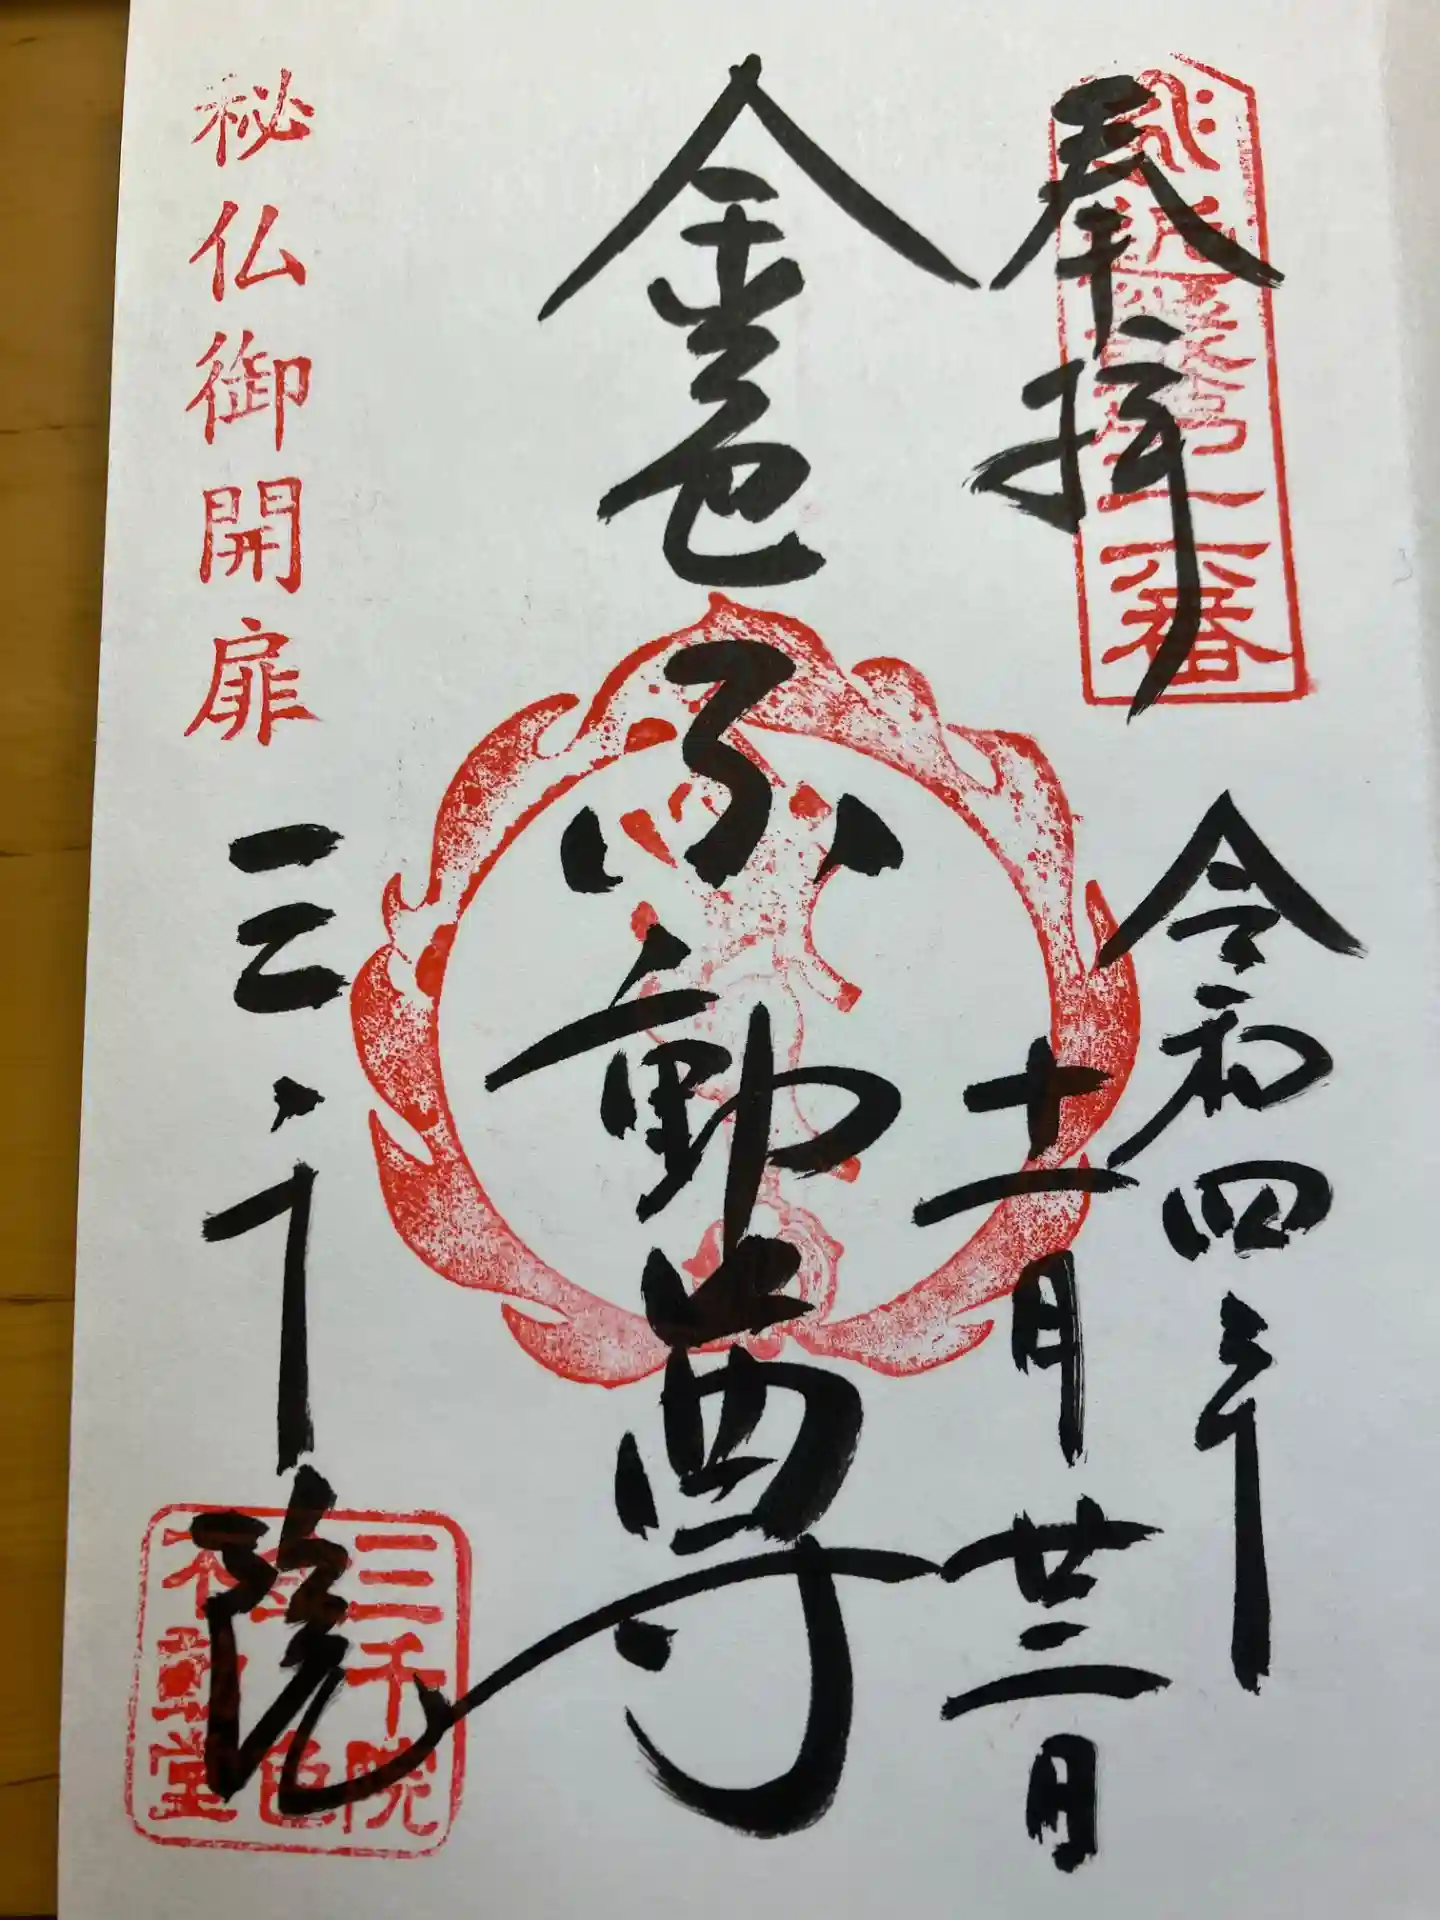 奉拝
近畿第十六番
令和四年
十一月廿三日
金色不動尊
秘仏御開扉
三千院
三千院
金色
不動堂